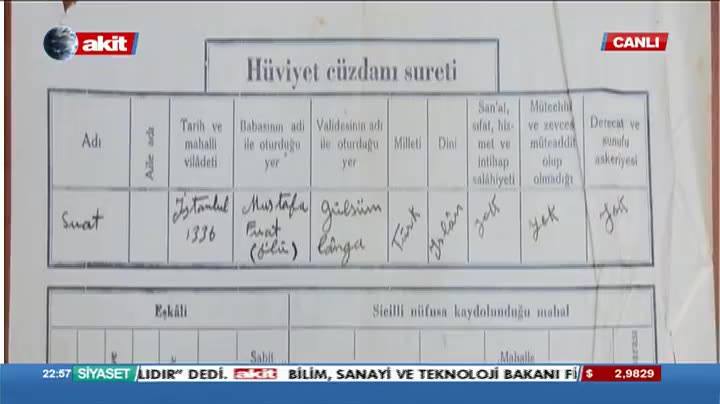 akit
CANLI
Hüviyet cüzdanı sureti
Adı
Aile adı
Tarih ve mahalli vilâdeti
Babasının adı ile oturduğu yer
Validesinin adı ile oturduğu yer
Milleti
Dini
San'at, sıfat, hizmet ve intihap salâhiyeti
Müteehhil ve zevcesi müteaddit olup olmadığı
Derecat ve sunufu askeriyesi
Suat
İstanbul
1336
Mustafa
Fuat
(ölü)
Gülsüm
Lânga
Türk
İslâm
yok
yok
yok
Eşkâli
Sicilli nüfusa kaydolunduğu mahal
Sabit
Mahalle
22:57 SİYASET LIDIR" DEDİ. akit BİLİM, SANAYİ VE TEKNOLOJİ BAKANI Fİ $ 2,9829